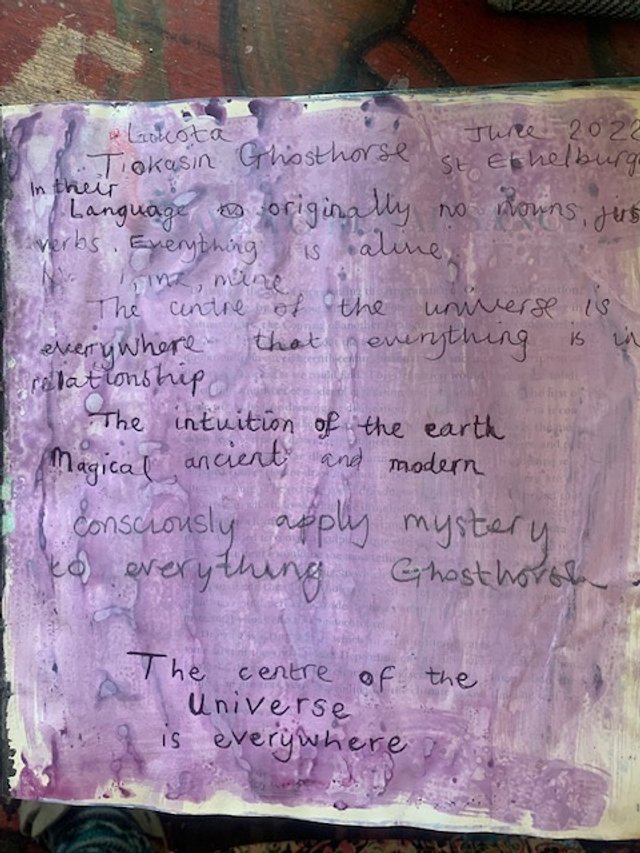 Lakota June 2022
Tiokasin Ghosthorse St Ethelburg
In their
Language originally no nouns, jus
verbs. Everything is alive.
No I, me, mine
The centre of the universe is
everywhere that everything is in
relationship
The intuition of the earth
Magical ancient and modern
consciously apply mystery
to everything Ghosthorse
The centre of the
Universe
is everywhere